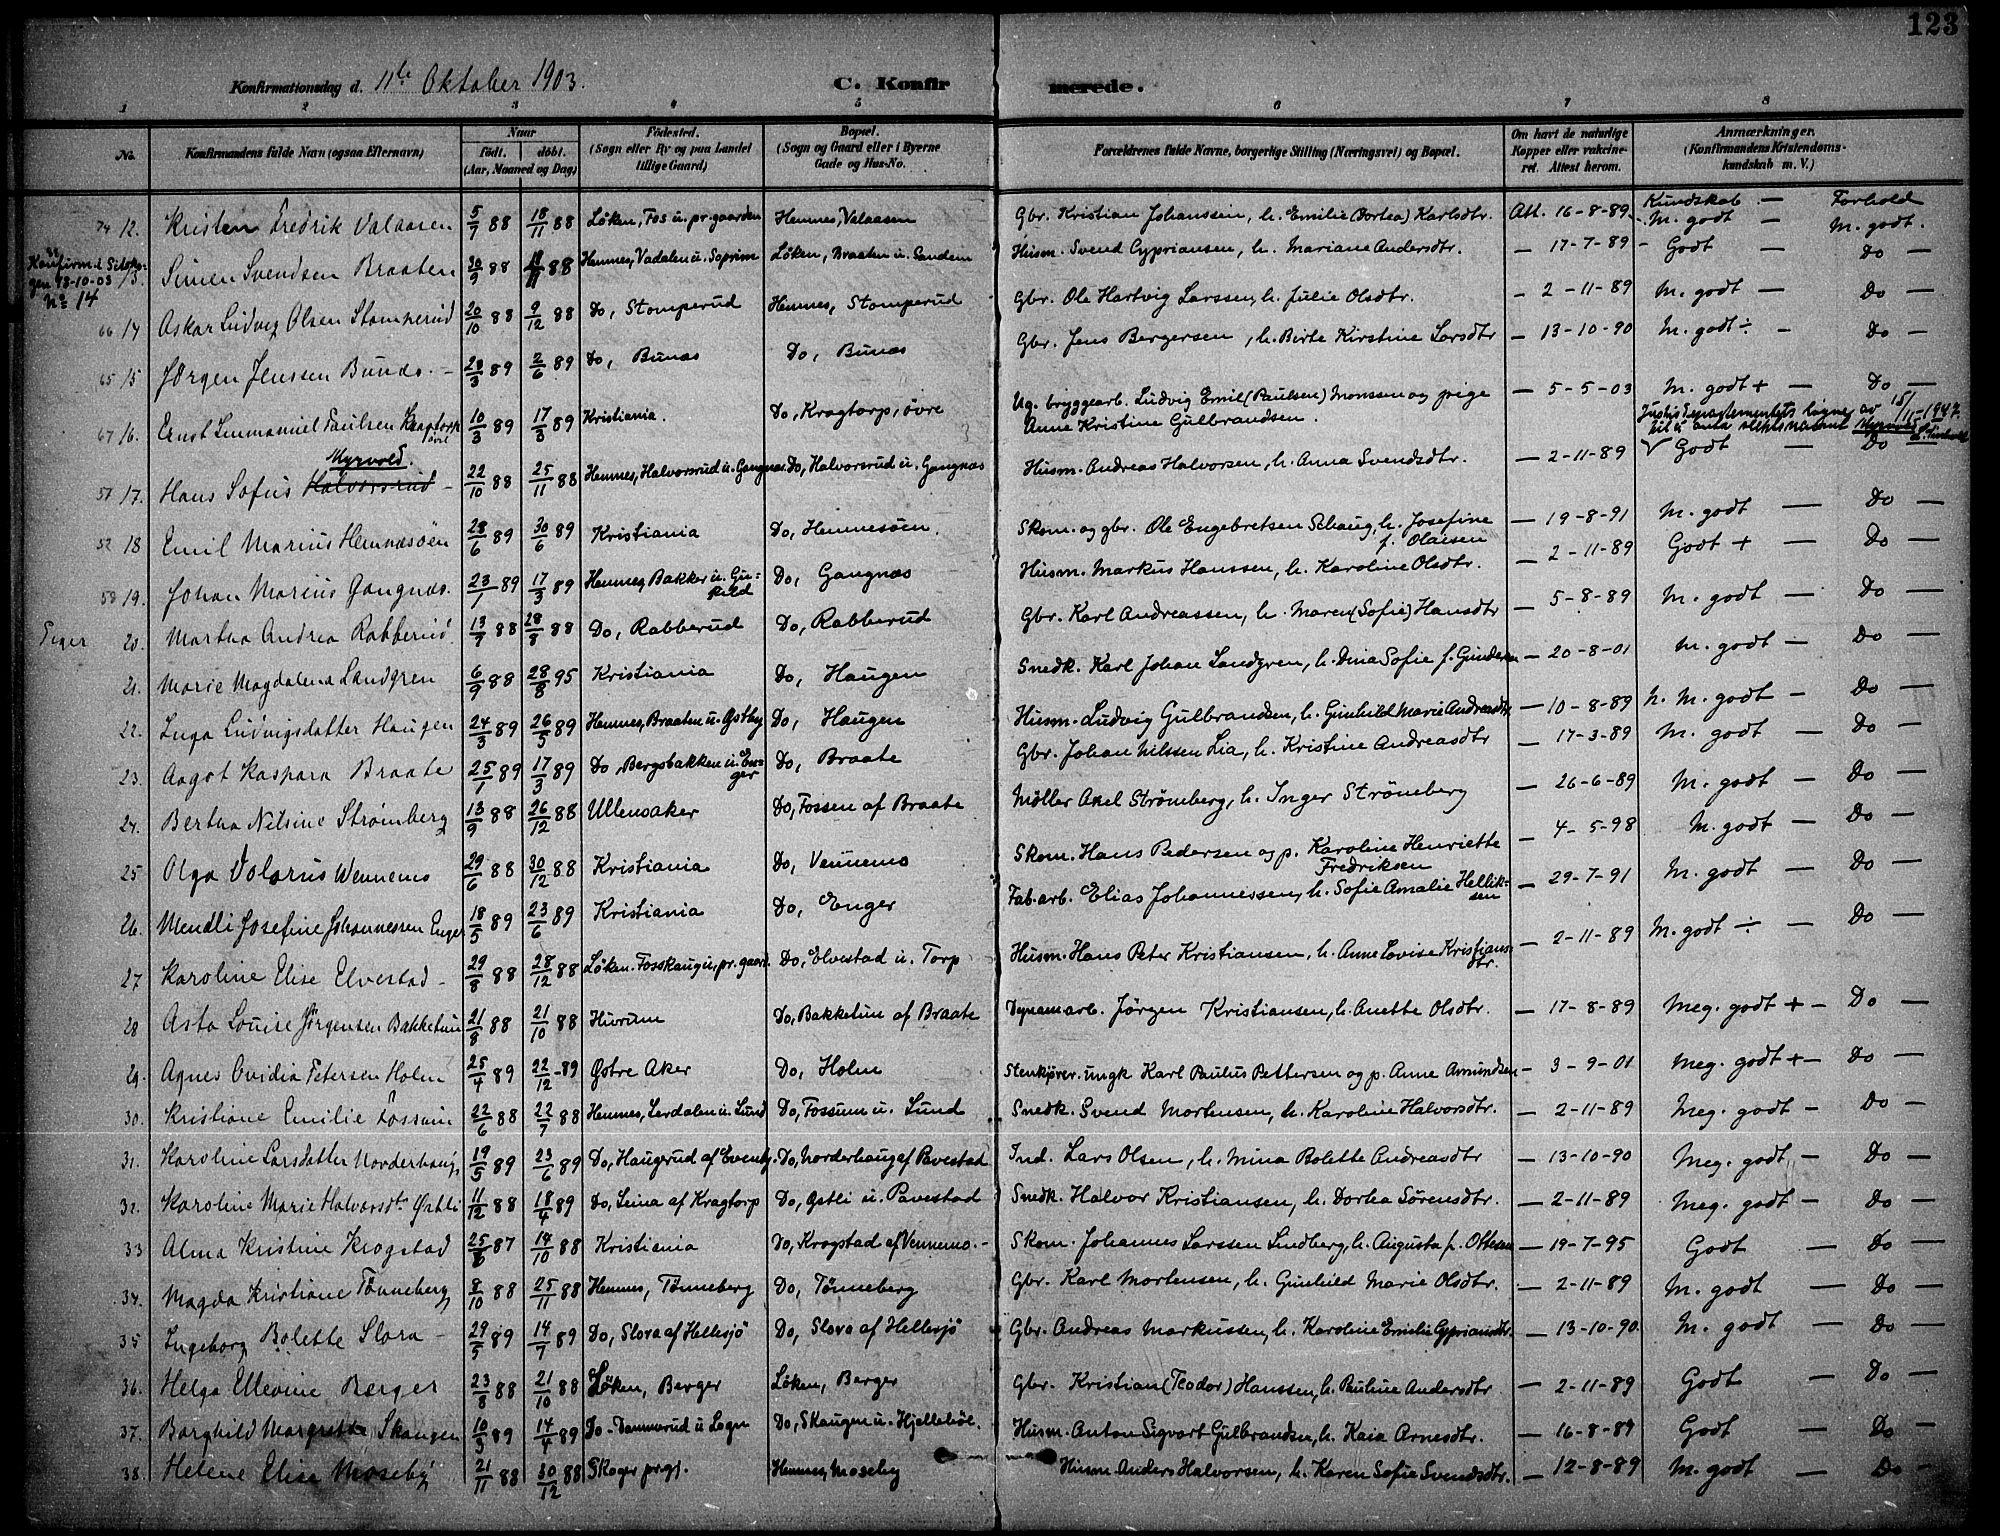 123
Konfirmationsdag d. 11te Oktober 1903. C. Konfirmerede.
1 2 3 4 5 6 7 8
No. Konfirmandens fulde Navn (ogsaa Efternavn) Naar født. døbt. (Aar, Maaned og Dag) Fødested. (Sogn eller By og paa Landet tillige Gaard) Bopæl. (Sogn og Gaard eller i Byerne Gade og Hus-No. Forældrenes fulde Navne, borgerlige Stilling (Næringsvei) og Bopæl. Om havt de naturlige Kopper eller vakcineret. Attest herom. Anmærkninger. (Konfirmandens Kristendomskundskab m. V.)
Kundskab — Forhold
74 12. Kristen Fredrik Valaasen 5/7 88 18/11 88 Løken, Fos u. pr.gaarden Hemnes, Valaasen Gbr. Kristian Johanssen, h. Emilie (Dortea) Karlsdtr. Att. 16-8-89. - M. godt — M. godt.
Konfirm. i Setsko- gen 18-10-03 No 14
13. Simen Svendsen Braaten 30/9 88 18/11 88 Hemnes, Vadalen u. Soprim Løken, Braaten u. Sandem Husm. Svend Cypriansen, h. Mariane Andersdtr. — 17-7-89 - Godt — Do —
66 14 Askar Ludvig Olsen Stomperud 20/10 88 9/12 88 Do, Stomperud Hemnes, Stomperud Gbr. Ole Hartvig Larssen, h. Julie Olsdtr. - 2-11-89 M. godt — Do —
65 15 Jørgen Jenssen Bunæs. — 23/3 89 2/6 89 Do, Bunæs Do, Bunæs Gbr. Jens Bergersen, h. Birte Kirstine Larsdtr — 13-10-90 M. godt ÷ - Do —
67 16. Ernst Emmanuel Paulsen Kragtorp øvre 10/3 89 17/3 89 Kristiania. Do, Kragtorp, øvre Ug. bryggearb. Ludvig Emil (Paulsen) Momsen og pige Anne Kristine Gulbrandsen. — 5-5-03 M. godt + — Do —
Justisdepartementets av 15/11-1947 til å anta slektsnavnet Myrvold
57 17. Hans Sofus Halvorsrud Myrvold. — 22/10 88 25/11 88 Hemnes, Halvorsrud u. Gangnæs Do, Halvorsrud u. Gangnæs Husm. Andreas Halvorsen, h. Anna Svendsdtr. — 2-11-89 V Godt — Do
52 18 Emil Marius Hemnæsøen 23/6 89 30/6 89 Kristiania Do, Hemnesøen. Skom. og gbr. Ole Engebretsen Schaug, h. Josefine f. Olaisen — 19-8-91 M. godt — Do —
58 19. Johan Marius Gangnæs. 23/1 89 17/3 89 Hemnes, Bakker u. Gu=kild Do, Gangnæs Husm. Markus Hanssen, h. Karoline Olsdtr. — 2-11-89 Godt + — Do —
Piger
20. Martha Andrea Rabberud. 13/7 88 28/8 88 Do, Rabberud Do, Rabberud Gbr. Karl Andreassen, h. Maren (Sofie) Hansdtr — 5-8-89 M. godt — Do —
21. Marie Magdalena Landgren 6/9 88 28/8 95 Kristiania Do, Haugen Snedk. Karl Johan Landgren, h. Dina Sofie f. Gundersen — 20-8-01 M. godt — Do —
22. Inga Ludvigsdatter Haugen 24/3 89 26/5 89 Hemnes, Braaten u. Østby Do, Haugen Husm. Ludvig Gulbrandsen, h. Gunhild Marie Andreasdtr — 10-8-89 n. M. godt — Do —
23. Aagot Kaspara Braate 25/1 89 17/3 89 Do, Bergsbakken u. En=ger Do, Braate Gbr. Johan Nilssen Lia, h. Kristine Andreasdtr — 17-3-89 M. godt — Do —
24. Bertha Nilsine Strømberg 13/9 88 26/12 88 Ullensaker Do, Fossen af Braate Møller Axel Strömeberg, h. Inger Strömeberg — 26-6-89 M. godt — Do —
25 Olga Valarus Wennemo 29/6 88 30/12 88 Kristiania Do, Vennemo Skom. Hans Pedersen og p. Karoline Henriette Fredriksen — 4-5-98 M. godt — Do —
26. Mendli Josefine Johannessen Enger 18/5 89 23/6 89 Kristiania Do, Enger Fab. arb. Elias Johannessen, h. Sofie Amalie Hellik=sen — 29-7-91 M. godt — Do —
27 Karoline Elise Elvestad — 29/8 88 28/12 88 Løken. Fosskaug u. pr. gaard. Do, Elvestad u. Torp Husm. Hans Peter Kristiansen, h. Anne Lovise Kristians=dtr. — 2-11-89 M. godt ÷ — Do —
28 Asta Louise Jørgensen Bakketun 21/8 88 21/10 88 Hurum Do, Bakketun af Braate Dynamarb. Jörgen Kristiansen, h. Anette Olsdtr. — 17-8-89 Meg. godt + — Do —
29. Agnes Ovidia Petersen Holm 25/4 89 22/12 89 Østre Aker Do, Holm Stenkjører. ungk Karl Paulus Pettersen og p. Anne Amundsen — 3-9-01 Meg. godt + — Do —
30. Kristiane Emilie Fossum 22/6 88 22/7 88 Hemnes, Lerdalen u. Lund Do, Fossum u. Lund Snedk. Svend Mortensen, h. Karoline Halvorsdtr. — 2-11-89 Meg. godt — Do —
31. Karoline Larsdatter Norderhaug 19/5 89 23/6 89 Do, Haugerud af Evenby. Do, Norderhaug af Pavestad Ind. Lars Olsen, h. Mina Bolette Andreasdtr — 13-10-90 Meg. godt — Do —
32. Karoline Marie Halvorsdtr Østli 11/12 88 18/4 89 Do, Leina af Kragtorp Do, Østli u. Pavestad Snedk. Halvor Kristiansen, h. Dortea Sörensdtr. — 2-11-89 Meg. godt — Do —
33 Alma Kristine Krogstad 25/8 87 14/10 88 Kristiania Do, Krogstad af Vennemo. — Skom. Johannes Larssen Lindberg, h. Augusta f. Ottesen — 19-7-95 Godt — Do —
34. Magda Kristiane Tønneberg 8/10 88 25/11 88 Hemnes, Tønneberg Do, Tønneberg Gbr. Karl Mortensen, h. Gunhild Marie Olsdtr. — 2-11-89 M. godt — Do —
35 Ingeborg Bolette Slora — 29/5 89 14/7 89 Do, Slora af Hellesjö Do, Slora af Hellesjö Gbr. Andreas Markussen, h. Karoline Emilie Cypriansdtr. — 13-10-90. M. godt — Do —
36. Helga Ellevine Berger 23/8 88 21/10 88 Løken, Berger Løken, Berger Gbr. Kristian (Teodor) Hanssen, h. Pauline Andersdtr. — 2-11-89 Godt — Do —
37. Borghild Margrethe Skaugen 10/3 89 14/4 89 Do - Dammerud u. Løgn Do, Skaugen u. Hjellebøl. Husm. Anton Sigvart Gulbrandsen, h. Kaia Arnesdtr. — 16-8-89 Godt — Do
38. Helene Elise Moseby 21/11 88 30/12 88 Skoger prgj. Hemnes, Moseby Husm Anders Halvorsen, h. Karen Sofie Svendsdtr. — 12-8-89 M. godt — Do —